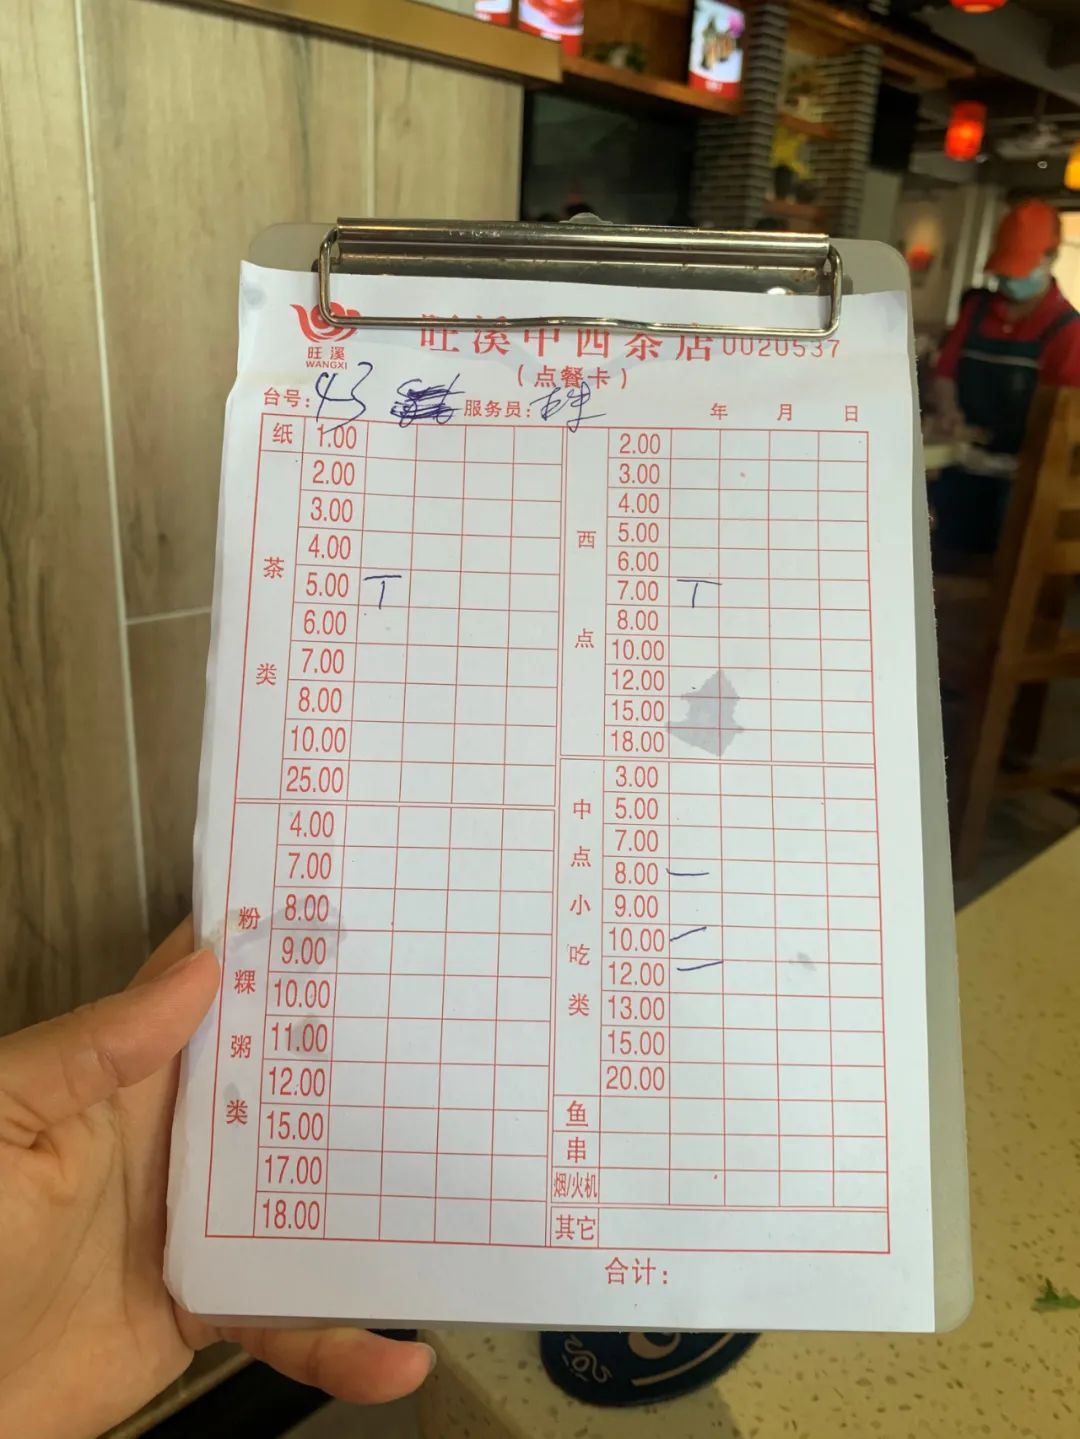 旺溪
WANGXI
旺溪中西茶店 0020537
(点餐卡)
台号: 43 服务员: 年 月 日
纸 1.00
茶类
2.00
3.00
4.00
5.00 T
6.00
7.00
8.00
10.00
25.00
粉粿粥类
4.00
7.00
8.00
9.00
10.00
11.00
12.00
15.00
17.00
18.00
西点
2.00
3.00
4.00
5.00
6.00
7.00 T
8.00
10.00
12.00
15.00
18.00
中点小吃类
3.00
5.00
7.00
8.00 一
9.00
10.00 一
12.00 一
13.00
15.00
20.00
鱼
串
烟/火机
其它
合计: